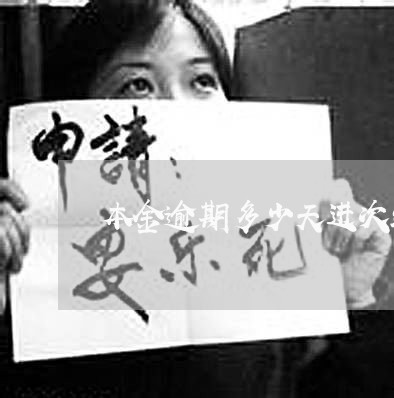 申請：
本金逾期多少天进次
要乐死